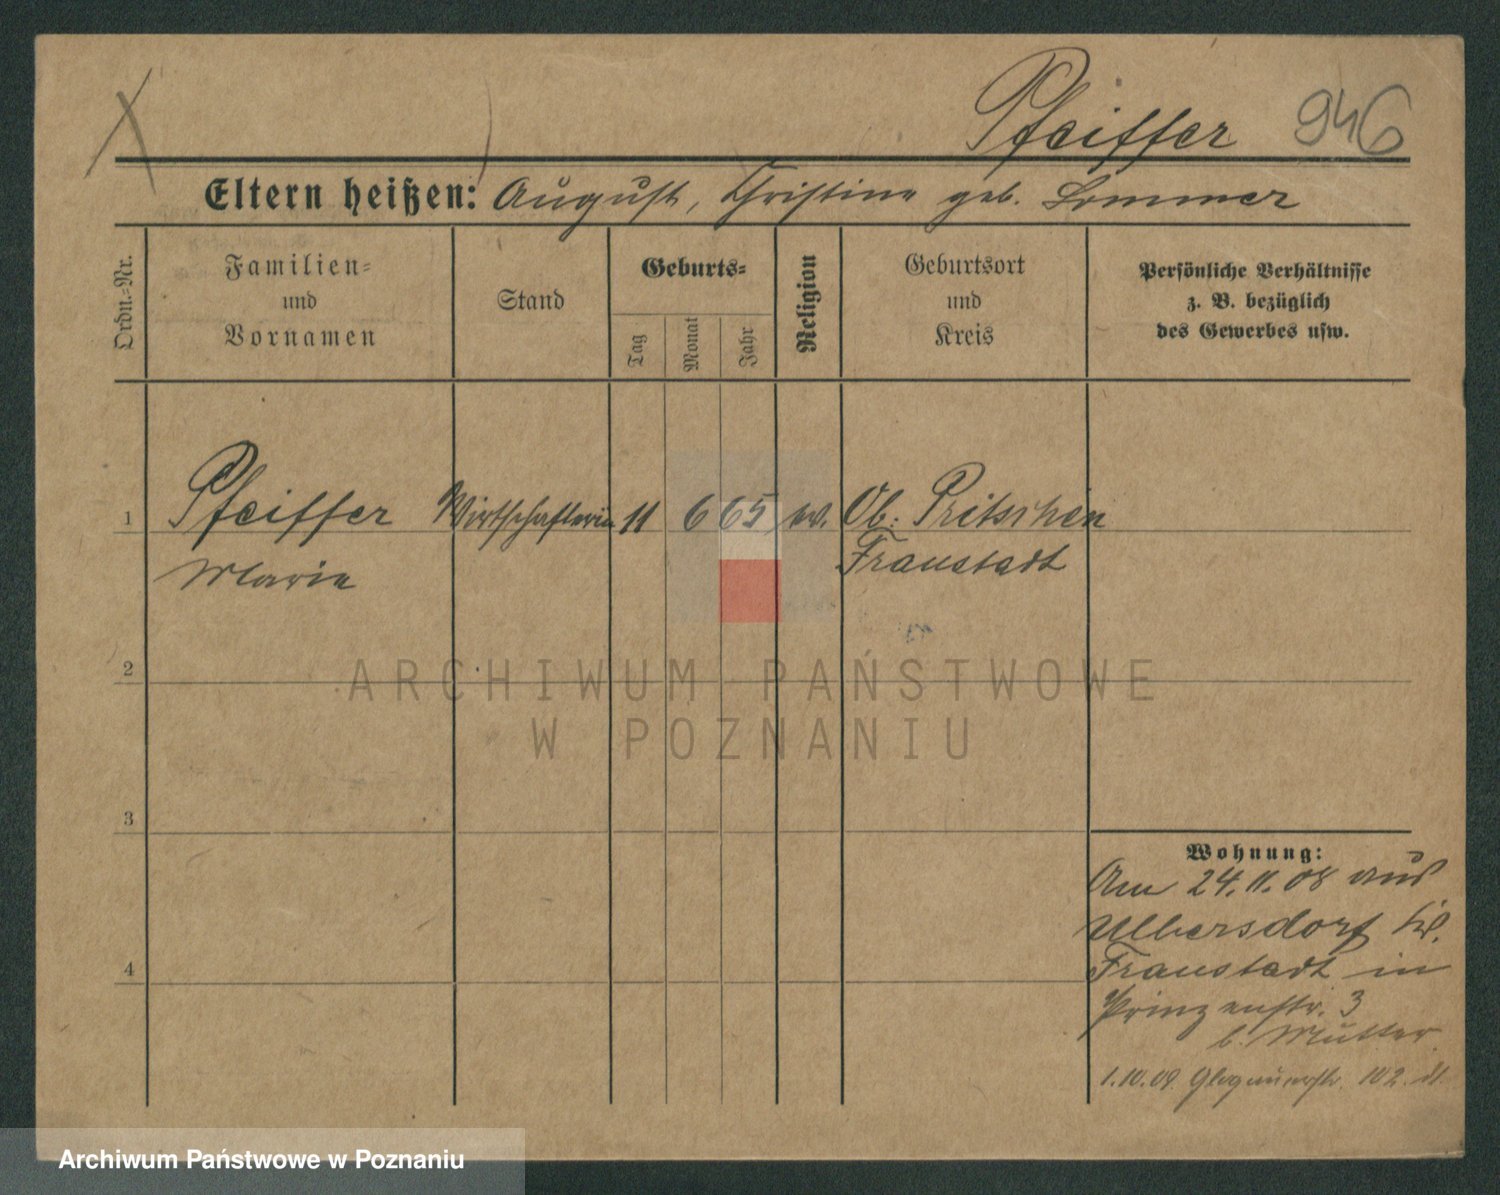 Pfeiffer 946
Eltern heißen: August, Christine geb. Sommer
Ordn.-Nr.
Familien-
und
Vornamen
Stand
Geburts-
Tag
Monat
Jahr
Religion
Geburtsort
und
Kreis
Persönliche Verhältnisse
z. B. bezüglich
des Gewerbes usw.
1 Pfeiffer Wirtschafterin 11 6 65 ev. Ob. Pritschen
Marie Fraustadt
2
ARCHIWUM PAŃSTWOWE
W POZNANIU
3
Wohnung:
Am 24.11.08 aus
Ulbersdorf Kr.
4
Fraustadt in
Prinzenstr. 3
b. Mutter
1.10.09 Glogauerstr. 102
Archiwum Państwowe w Poznaniu